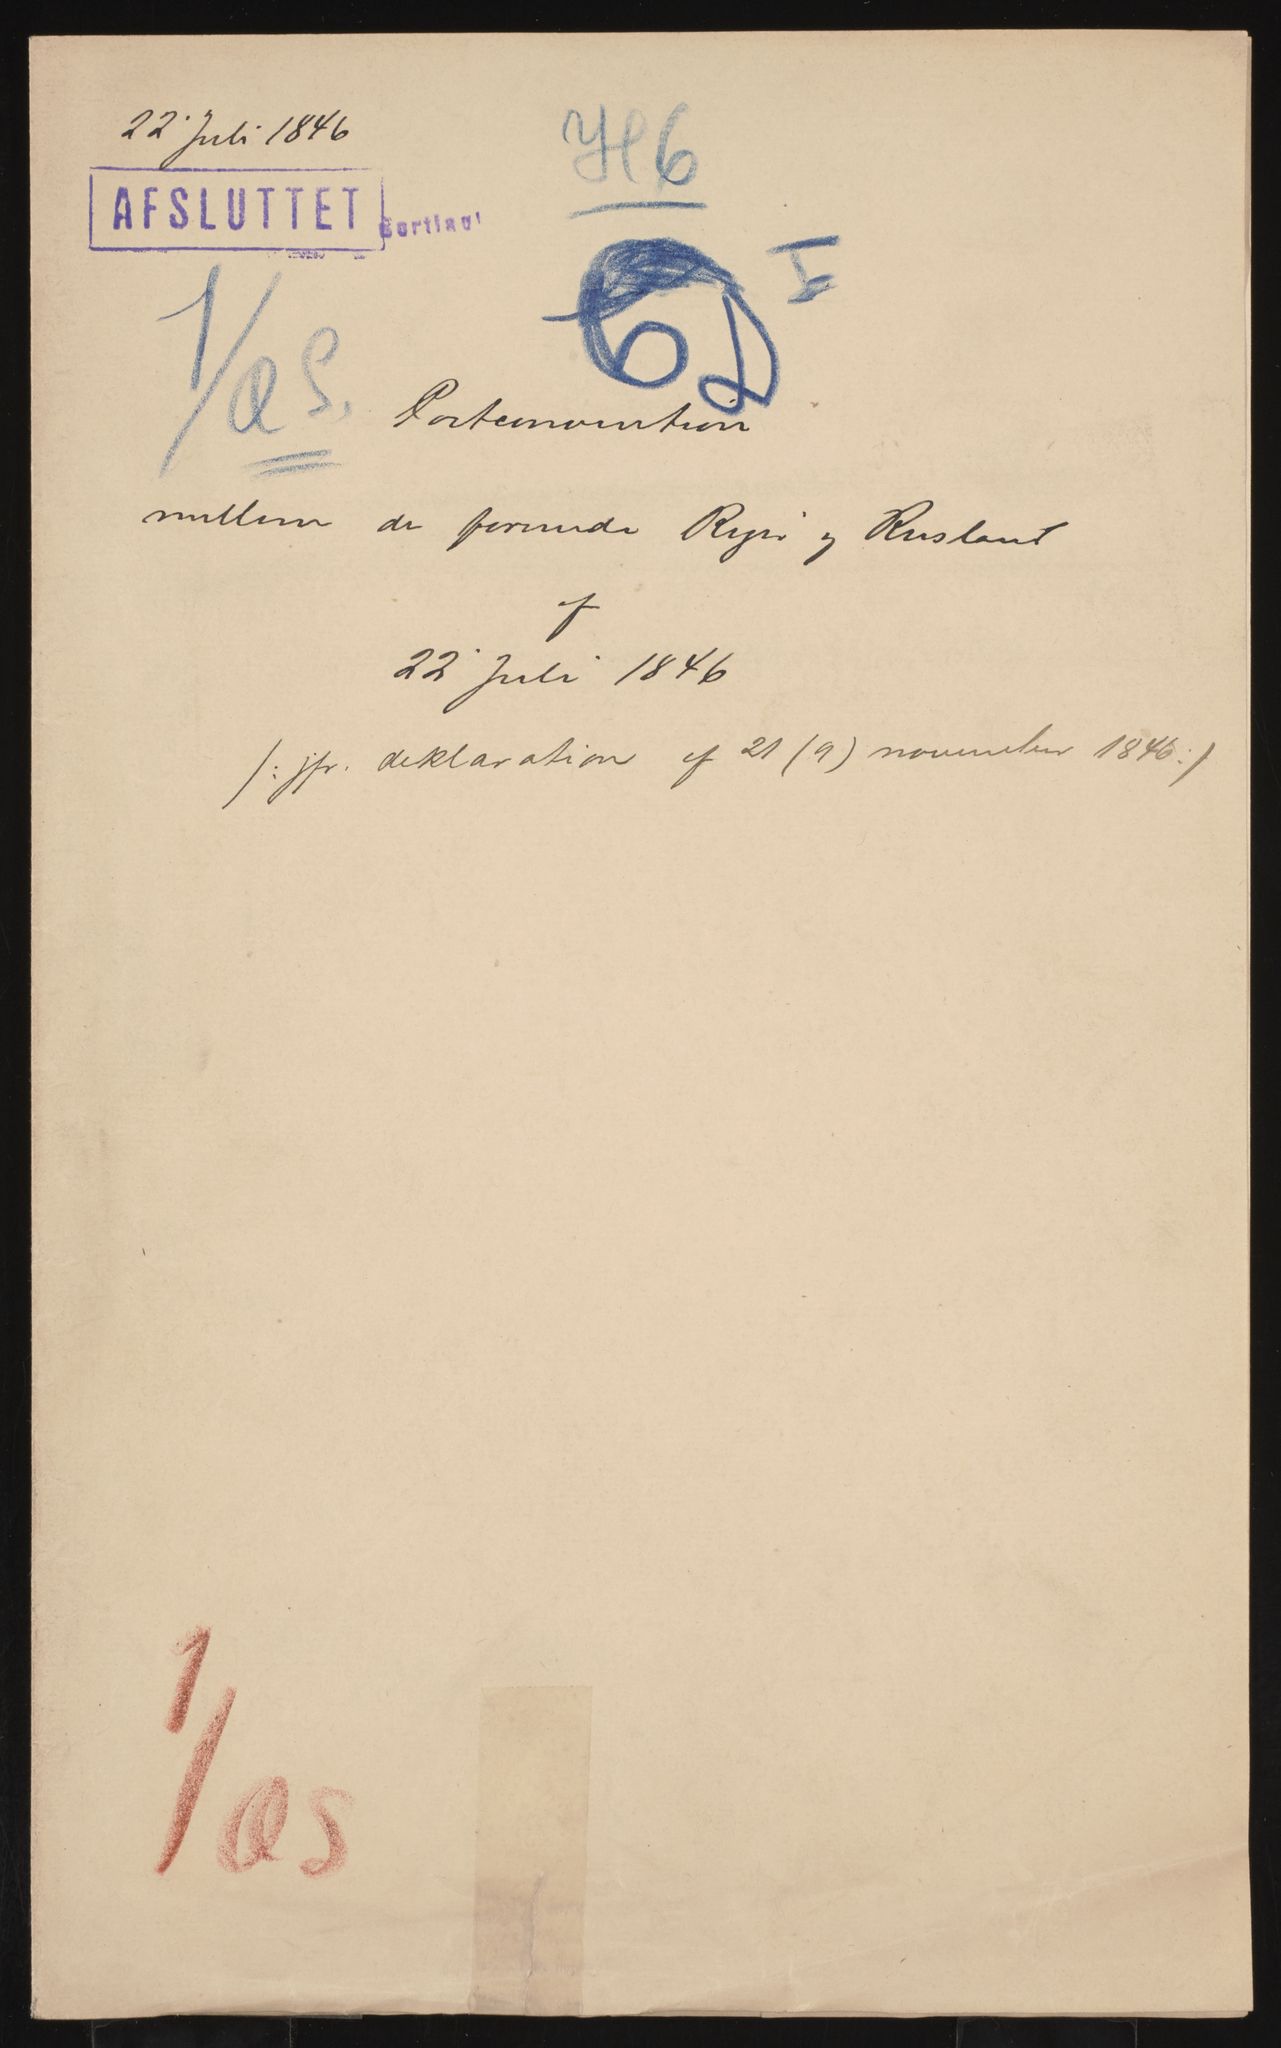 22 Juli 1846
H 6
AFSLUTTET
6 D I
1/Øs.
Postconvention
mellem de forenede Riger og Rusland
af
22 Juli 1846
/: jfr. deklaration af 21 (9) november 1846 :/
1/Øs